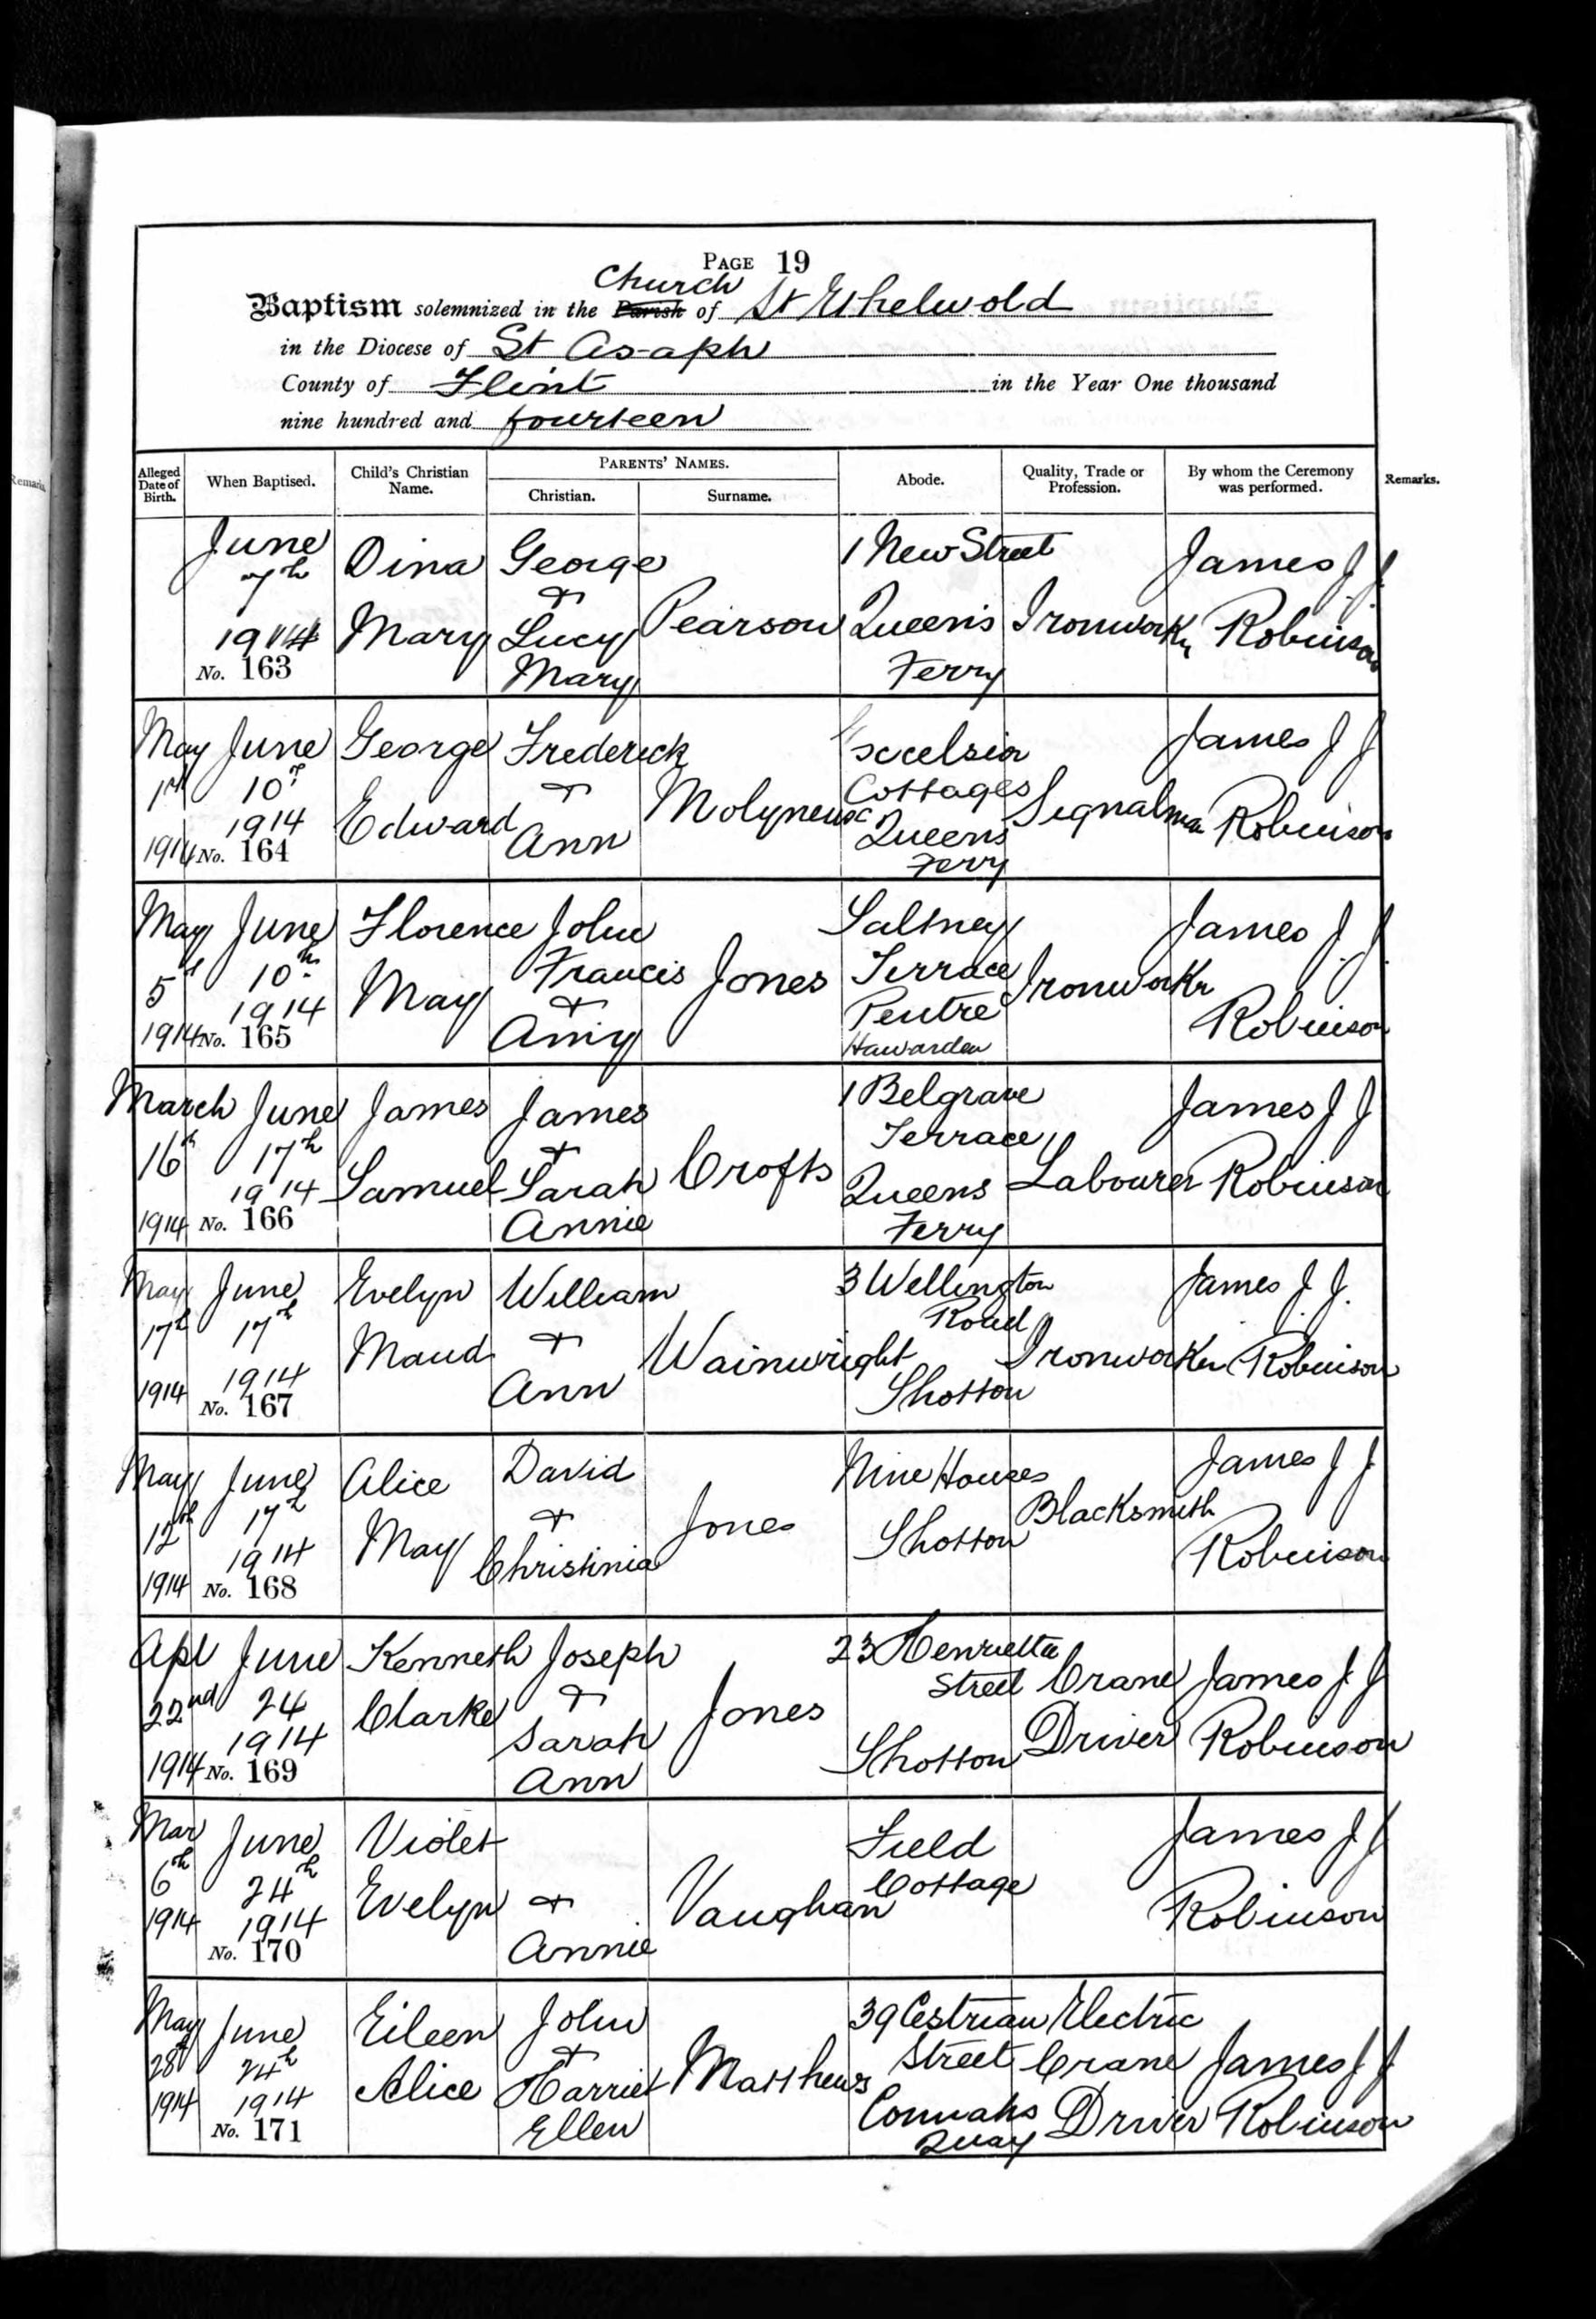 PAGE 19
Church
Baptism solemnized in the Parish of St Ethelwold
in the Diocese of St Asaph
County of Flint in the Year One thousand
nine hundred and fourteen
Alleged Date of Birth.
When Baptised.
Child's Christian Name.
PARENTS' NAMES.
Christian.
Surname.
Abode.
Quality, Trade or Profession.
By whom the Ceremony was performed.
Remarks.
June 7th 1914
No. 163
Dina Mary
George + Lucy Mary
Pearson
1 New Street Queen's Ferry
Ironworkr
James J. J. Robinson
May 1st 1914
June 10th 1914
No. 164
George Edward
Frederick + Ann
Molyneux
Excelsior Cottages Queens Ferry
Signalman
James J J Robinson
May 5th 1914
June 10th 1914
No. 165
Florence May
John Francis + Amy
Jones
Saltney Terrace Pentre Hawarden
Ironworkr
James J. J. Robinson
March 16th 1914
June 17th 1914
No. 166
James Samuel
James + Sarah Annie
Crofts
1 Belgrave Terrace Queens Ferry
Labourer
James J J Robinson
May 17th 1914
June 17th 1914
No. 167
Evelyn Maud
William + Ann
Wainwright
3 Wellington Road Shotton
Ironworker
James J. J. Robinson
May 12th 1914
June 17th 1914
No. 168
Alice May
David + Christinia
Jones
Nine Houses Shotton
Blacksmith
James J J Robinson
Apl 22nd 1914
June 24 1914
No. 169
Kenneth Clarke
Joseph + Sarah Ann
Jones
23 Henrietta Street Shotton
Crane Driver
James J J Robinson
Mar 6th 1914
June 24th 1914
No. 170
Violet Evelyn
+ Annie
Vaughan
Field Cottage
James J J Robinson
May 28th 1914
June 24th 1914
No. 171
Eileen Alice
John + Harriet Ellen
Matthews
39 Cestrian Street Connahs Quay
Electric Crane Driver
James J J Robinson